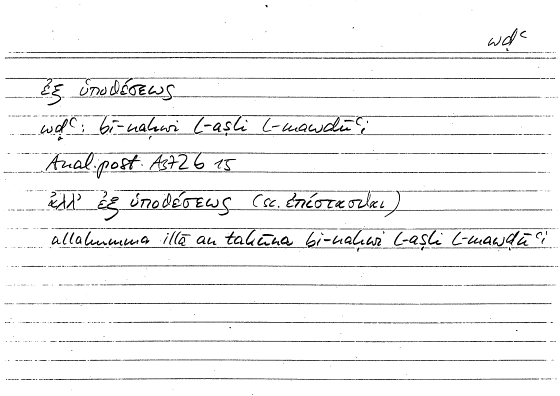 wḍʿ
ἐξ ὑποθέσεως
wḍʿ: bi-naḥwi l-aṣli l-mawḍūʿi
Anal. post. A3 72 b 15
ἀλλ' ἐξ ὑποθέσεως (sc. ἐπίστασθαι)
allahumma illā an takūna bi-naḥwi l-aṣli l-mawḍūʿi